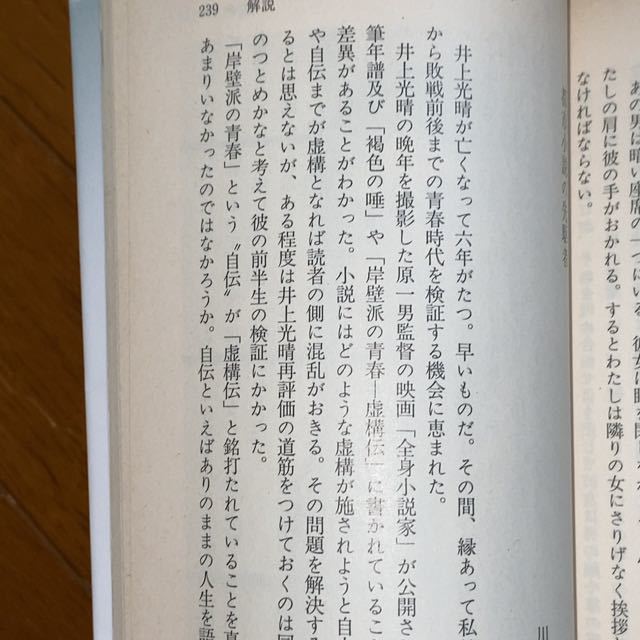 あの男は暗い座席の一つにいる。彼女は
たしの肩に彼の手がおかれる。するとわたしは隣りの女にさりげなく挨拶
なければならない。
239 解説
川
井上光晴が亡くなって六年がたつ。早いものだ。その間、縁あって私
から敗戦前後までの青春時代を検証する機会に恵まれた。
井上光晴の晩年を撮影した原一男監督の映画「全身小説家」が公開さ
筆年譜及び「褐色の唾」や「岸壁派の青春―虚構伝」に書かれているこ
差異があることがわかった。小説にはどのような虚構が施されようと自由
や自伝までが虚構となれば読者の側に混乱がおきる。その問題を解決する
るとは思えないが、ある程度は井上光晴再評価の道筋をつけておくのは同
のつとめかなと考えて彼の前半生の検証にかかった。
「岸壁派の青春」という〝自伝〟が「虚構伝」と銘打たれていることを真
あまりいなかったのではなかろうか。自伝といえばありのままの人生を語